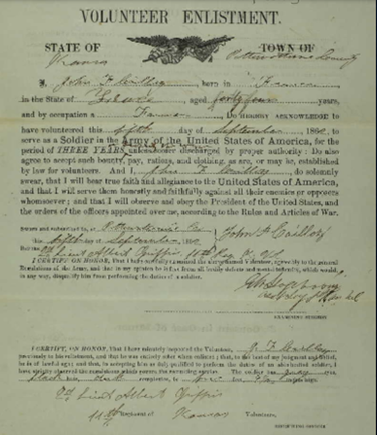 VOLUNTEER ENLISTMENT.
STATE OF TOWN OF
Kansas Pottawatomie County
I, John F born in France
in the State of aged forty four years,
and by occupation a Farmer Do HEREBY ACKNOWLEDGE to
have volunteered this fifth day of September 1862, to
serve as a Soldier in the Army of the United States of America, for the
period of THREE YEARS, unless sooner discharged by proper authority: Do also
agree to accept such bounty, pay, rations, and clothing, as are, or may be, established
by law for volunteers. And I, John F do solemnly
swear, that I will bear true faith and allegiance to the United States of America,
and that I will serve them honestly and faithfully against all their enemies or opposers
whomsoever; and that I will observe and obey the President of the United States, and
the orders of the officers appointed over me, according to the Rules and Articles of War.
Sworn and subscribed to, at Pottawatomie Co
this fifth day of September 1862 John F
2d Lieut Albert Griffin 11th Reg K Vol
I CERTIFY, ON HONOR, That I have carefully examined the above named Volunteer, agreeably to the general
Regulations of the Army, and that in my opinion he is free from all bodily defects and mental infirmity, which would,
in any way, disqualify him from performing the duties of a soldier.
EXAMINING SURGEON.
I CERTIFY, ON HONOR, That I have minutely inspected the Volunteer, J. F.
previously to his enlistment, and that he was entirely sober when enlisted; that, to the best of my judgment and belief,
he is of lawful age; and that, in accepting him as duly qualified to perform the duties of an able-bodied soldier, I
have strictly observed the Regulations which govern the recruiting service. This soldier has
hair, complexion, is feet inches high.
2d Lieut Albert Griffin
11th Regiment of Kansas Volunteers,
RECRUITING OFFICER.